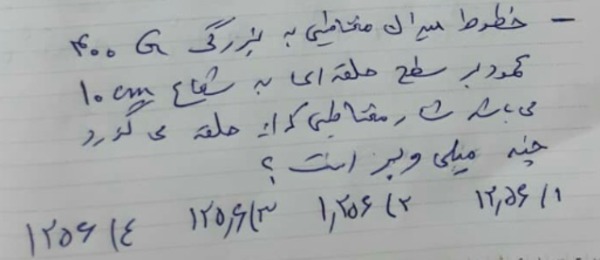 - خطوط میدان مغناطیسی به بزرگی ۴۰۰ G
عمود بر سطح حلقه ای به شعاع ۱۰ cm
می باشد شار مغناطیسی که از حلقه می گذرد
چند میلی وبر است ؟
۱) ۱۲,۵۶ ۲) ۱,۲۵۶ ۳) ۱۲۵,۶ ۴) ۱۲۵۶